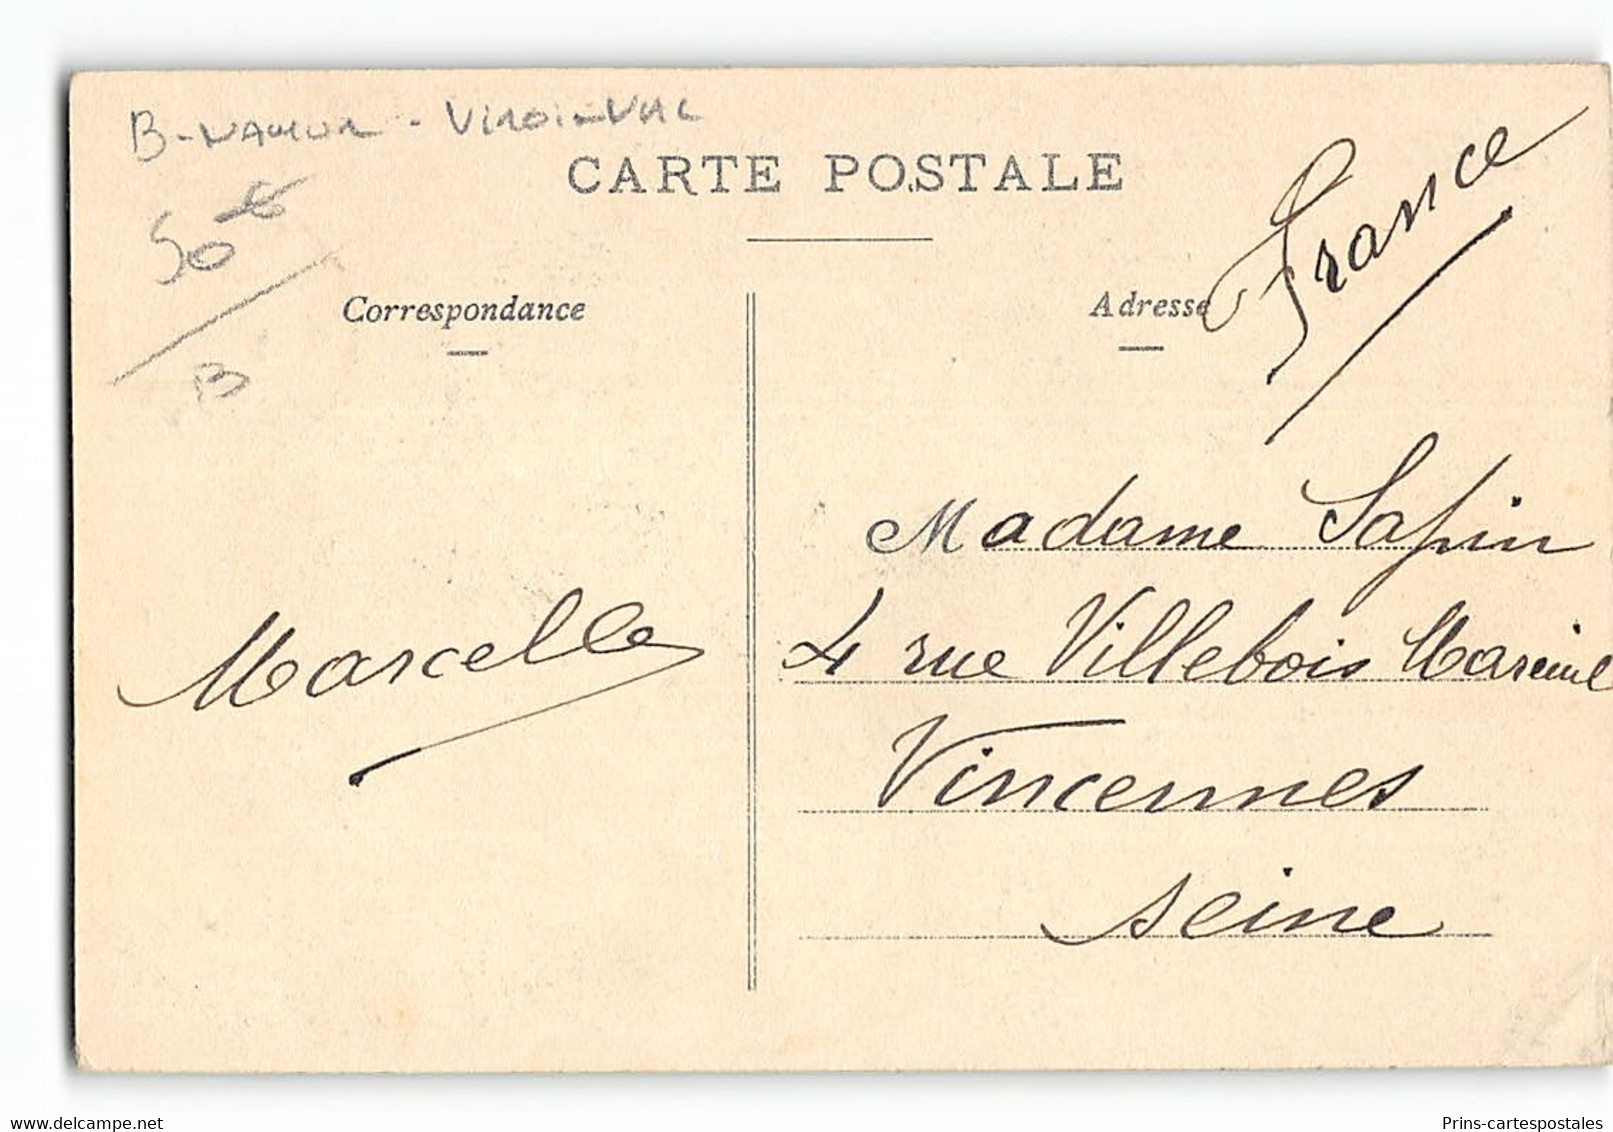 B-NAMUR - VIROINVAL
CARTE POSTALE
50 €
B
France
Correspondance
Adresse
Madame Sapin
4 rue Villebois Mareuil
Vincennes
Seine
Marcelle
delcampe.net
Prins-cartespostales